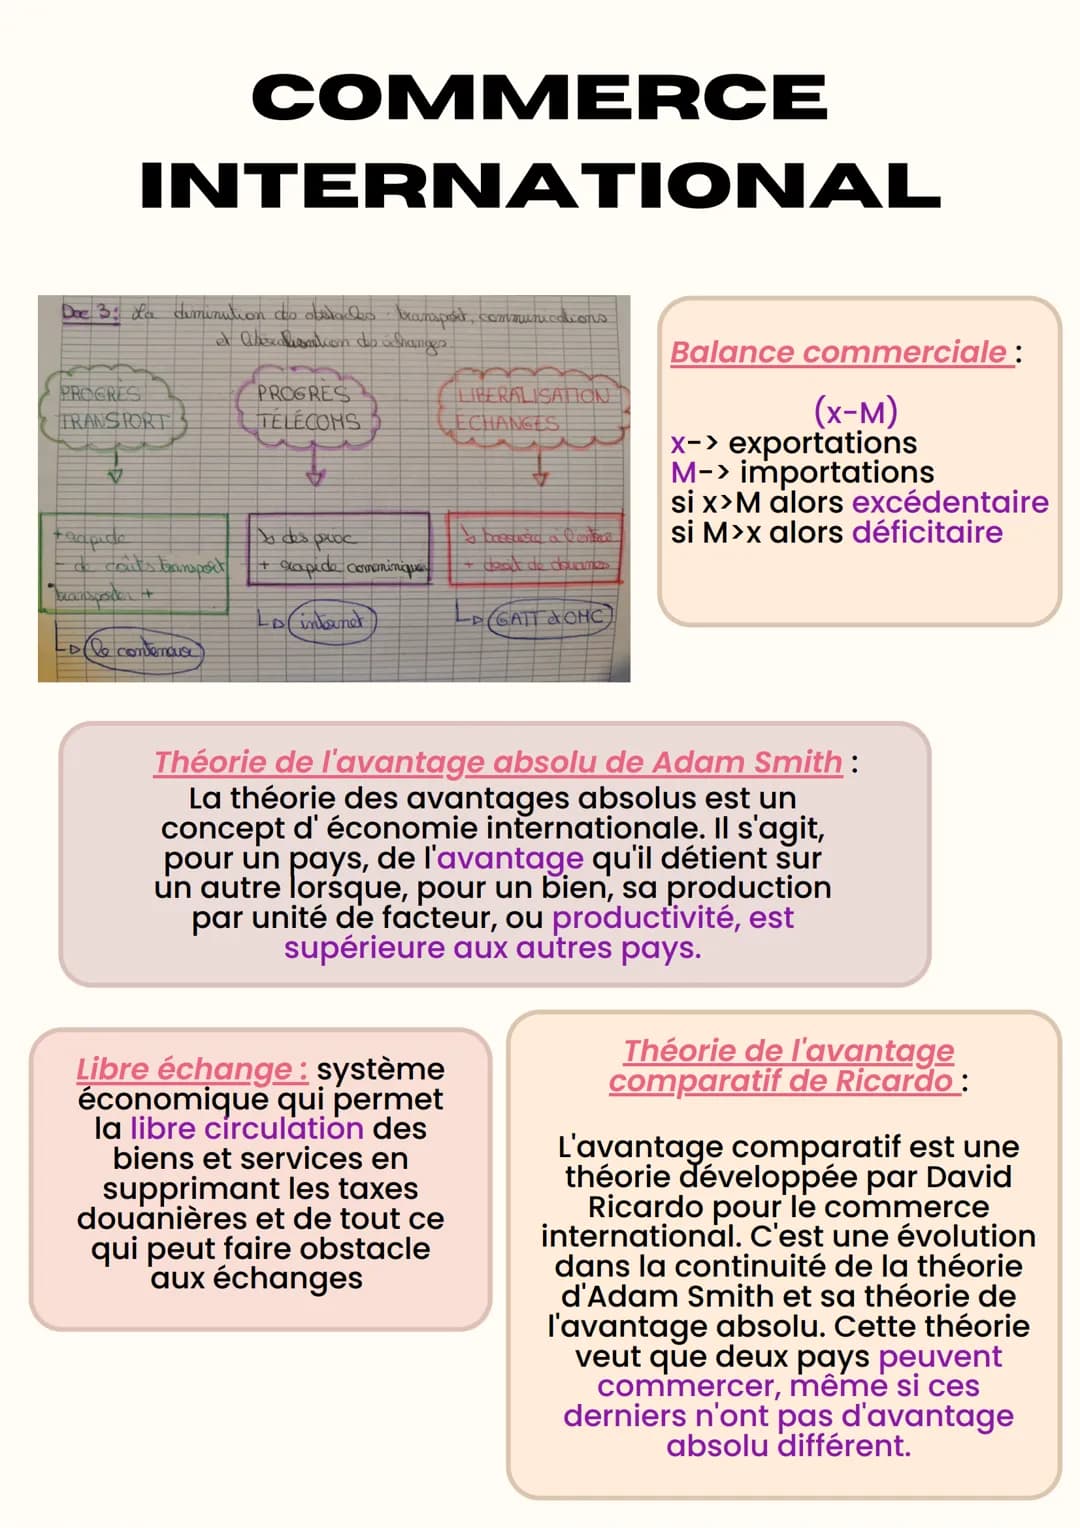 COMMERCE
INTERNATIONAL
Doc 3: La diminution des obstacles transport, communications
et libéralisation des échanges
PROGRÈS
TRANSPORT
PROGRÈS
TÉLÉCOMS
LIBERALISATION
ECHANGES
+ rapide
- de coûts transport
transporter +
↳ le conteneur
↘ des prix
+ rapide communiquer
↳ internet
↘ à l'entrée
+ droit de douanes
↳ GATT et OMC
Balance commerciale :
(x-M)
x-> exportations
M-> importations
si x>M alors excédentaire
si M>x alors déficitaire
Théorie de l'avantage absolu de Adam Smith :
La théorie des avantages absolus est un
concept d' économie internationale. Il s'agit,
pour un pays, de l'avantage qu'il détient sur
un autre lorsque, pour un bien, sa production
par unité de facteur, ou productivité, est
supérieure aux autres pays.
Libre échange : système
économique qui permet
la libre circulation des
biens et services en
supprimant les taxes
douanières et de tout ce
qui peut faire obstacle
aux échanges
Théorie de l'avantage
comparatif de Ricardo :
L'avantage comparatif est une
théorie développée par David
Ricardo pour le commerce
international. C'est une évolution
dans la continuité de la théorie
d'Adam Smith et sa théorie de
l'avantage absolu. Cette théorie
veut que deux pays peuvent
commercer, même si ces
derniers n'ont pas d'avantage
absolu différent.